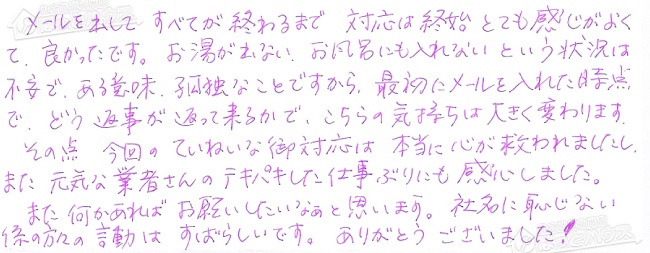 メールを出して すべてが 終わるまで 対応は終始 とても感じがよく
て、良かったです。 お湯が出ない、お風呂にも入れない という状況は
不安で、ある意味、孤独なことですから、最初にメールを入れた時点
で、どう返事が返って来るかで、こちらの気持ちは大きく変わります。
その点 今回のていねいな御対応は 本当に心が救われましたし、
また 元気な業者さんのテキパキした仕事ぶりにも感心しました。
また何かあれば お願いしたいなぁと思います。 社名に恥じない
係の方々の言動は すばらしいです。 ありがとう ございました!